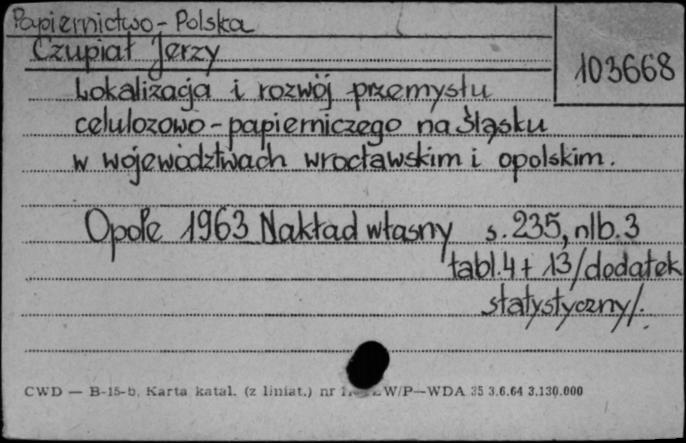 Papiernictwo - Polska
Czupiał Jerzy
103668
Lokalizacja i rozwój przemysłu
celulozowo - papierniczego na Śląsku
w województwach wrocławskim i opolskim.
Opole 1963 Nakład własny s. 235, nlb. 3
tabl. 4 + 13 /dodatek
statystyczny/.
CWD — B-15-b, Karta katal. (z liniat.) nr W/P—WDA 35 3.6.64 3.130.000